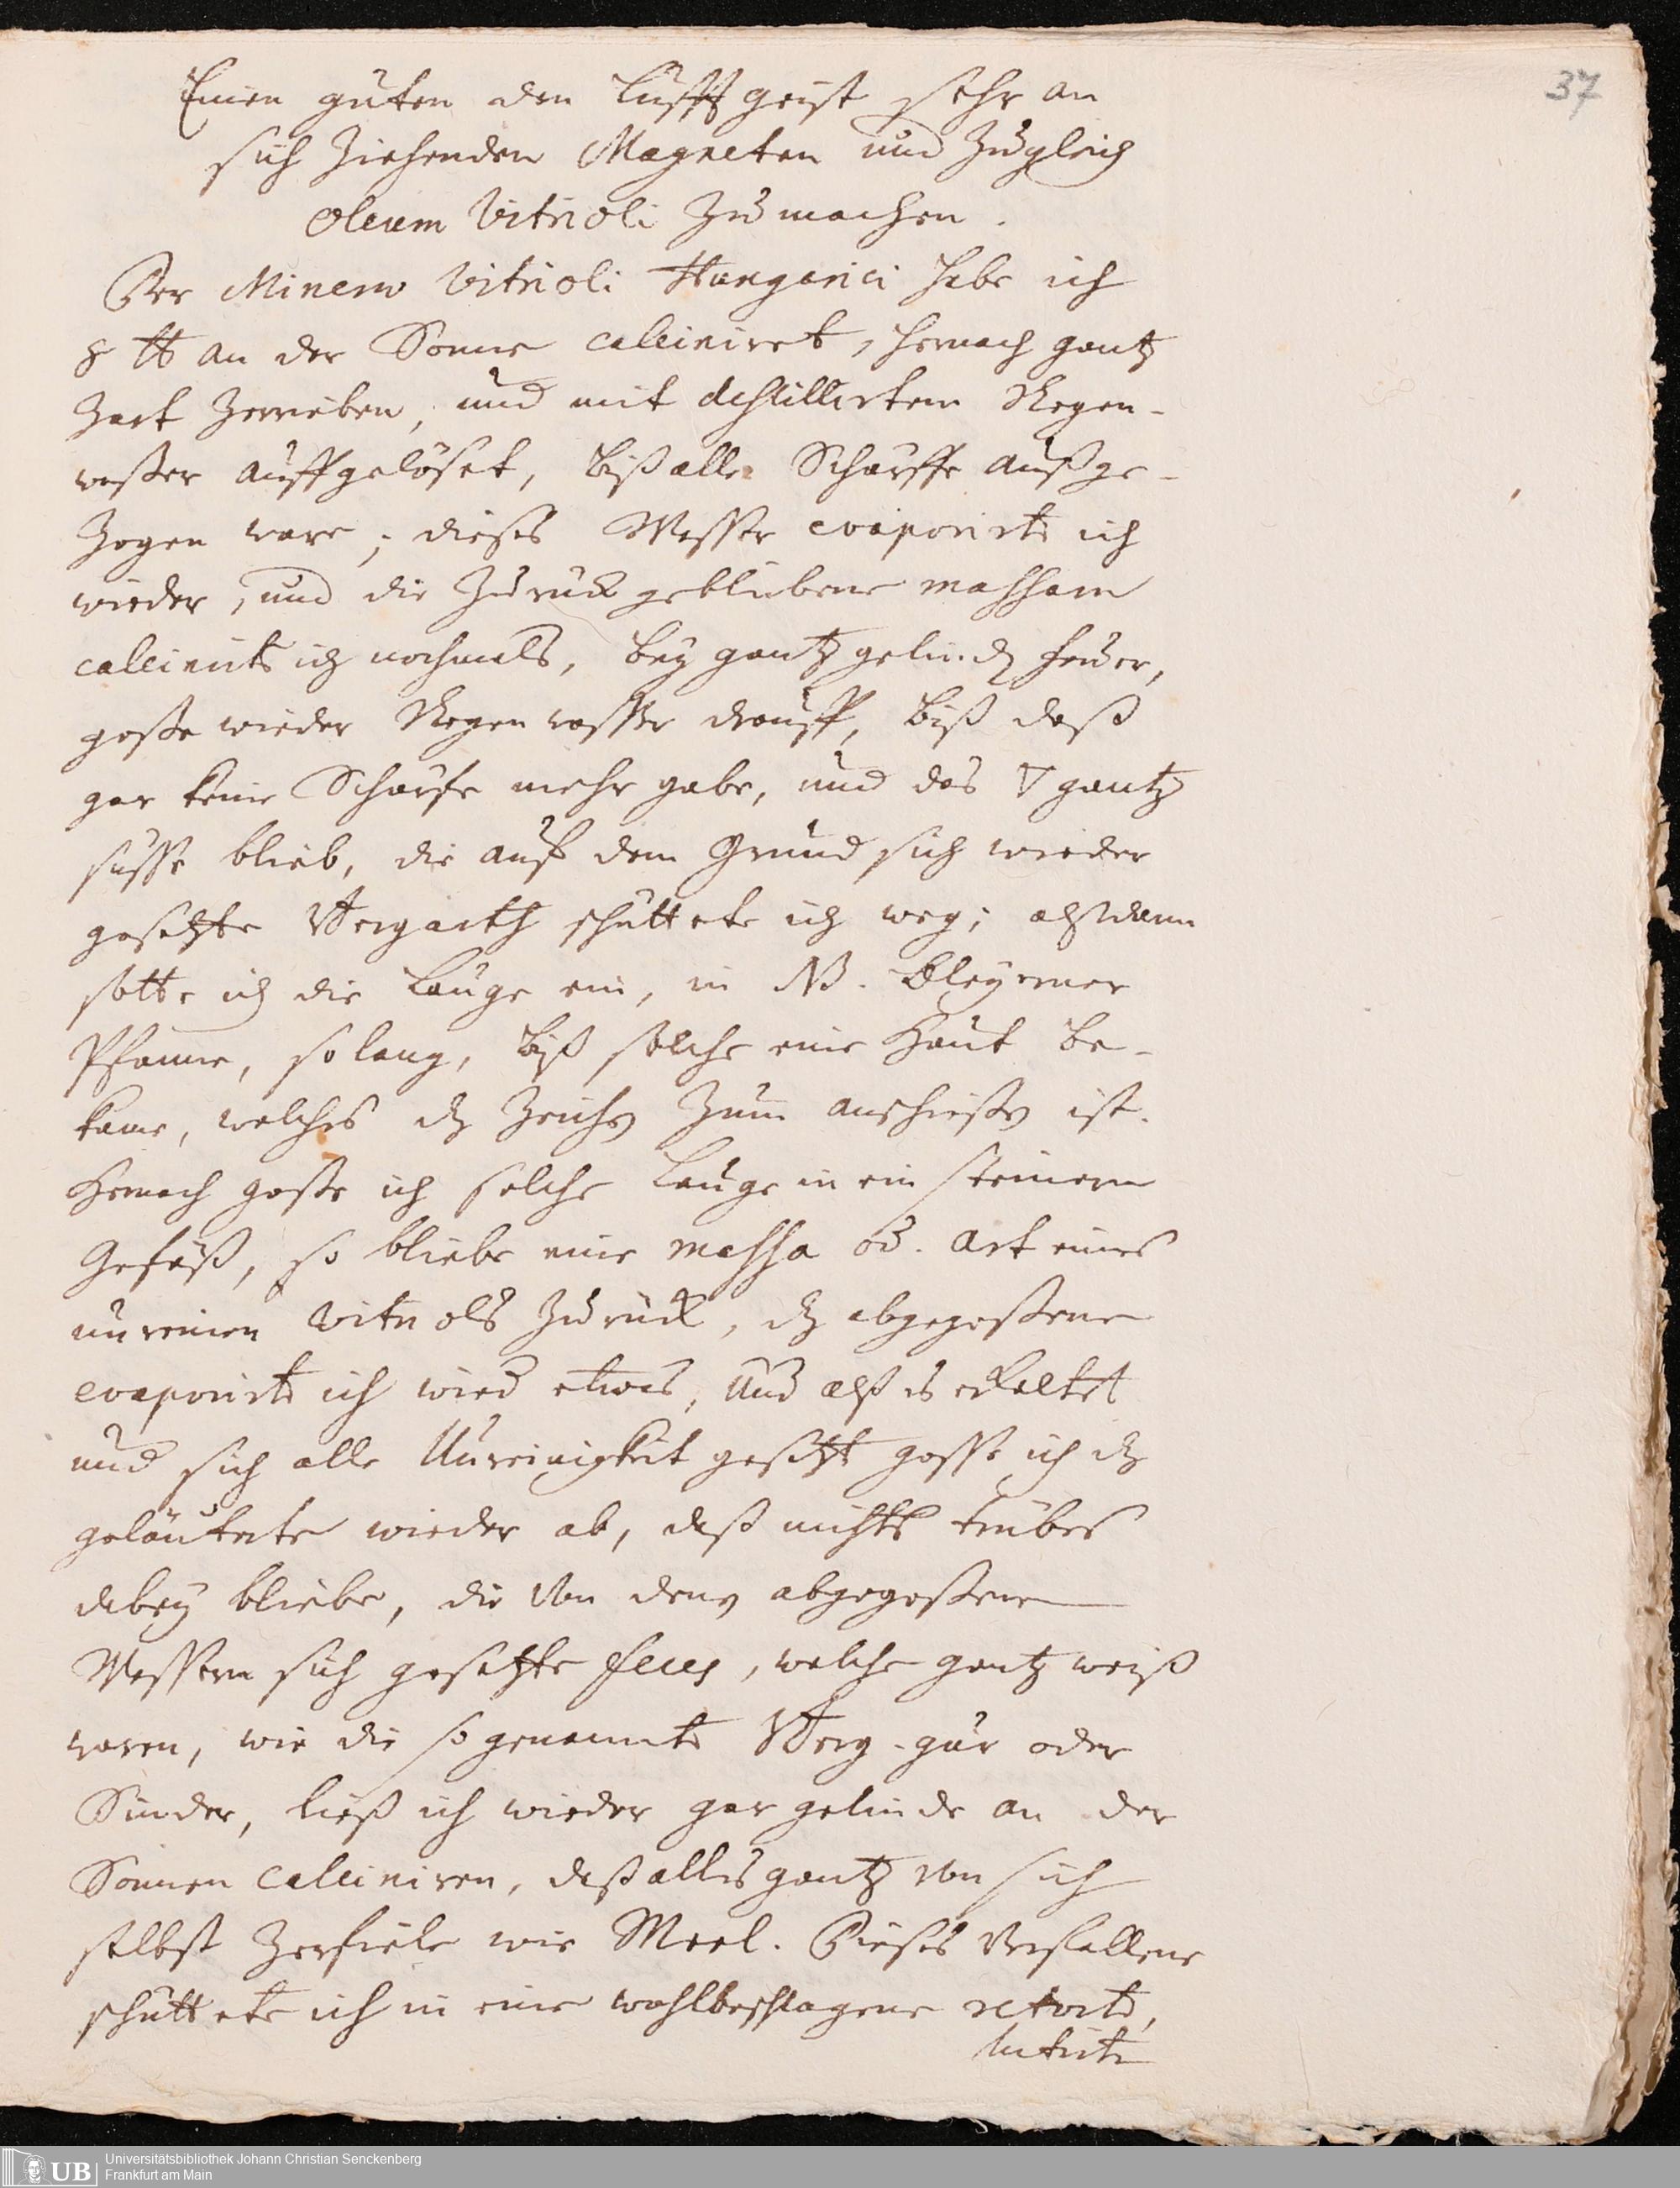 37
Einen guten den Lufftgeist sehr an
sich ziehenden Magneten und zugleich
Oleum Vitrioli zu machen.
Der Minera Vitrioli Hungarici habe ich
8 ℔ an der Sonne calciniret, hernach gantz
zart zerrieben, und mit destillirtem Regen-
waßer auffgelöset, biß alle Schärffe außge-
zogen ware; dieses Wasser evaporirte ich
wieder, und die zurück gebliebene massam
calcinirte ich nochmals, bey gantz gelindem feuer,
goße wieder Regenwasser drauff, biß daß
gar keine Schärfe mehr gabe, und das ▽ gantz
süsse blieb, die auf dem Grund sich wieder
gesetzte Bergarth schüttete ich weg; alßdann
sotte ich die Lauge ein, in NB. Bleyerner
Pfanne, so lang, biß solche eine Haut be-
kame, welches dz Zeichen zum anschießen ist.
Hernach goße ich solche Lauge in ein steinern
Gefäß, so bliebe eine massa od. Art eines
unreinen Vitriols zurück, dz abgegoßene
evaporirte ich wied etwas, und alß es erkaltet
und sich alle Unreinigkeit gesetzt gosse ich dz
geläuterte wieder ab, daß nichts trübes
dabey bliebe, die von denen abgegoßenen
Wassern sich gesetzte feces, welche gantz weiß
waren, wie die sogenannte Berg-gur oder
Sinder, ließ ich wieder gar gelinde an der
Sonnen calciniren, daß alles gantz von sich
selbst zerfiele wie Meel. Dieses Verfallene
schüttete ich in eine wohlbeschlagene retorte,
lutirte
UB
Universitätsbibliothek Johann Christian Senckenberg
Frankfurt am Main